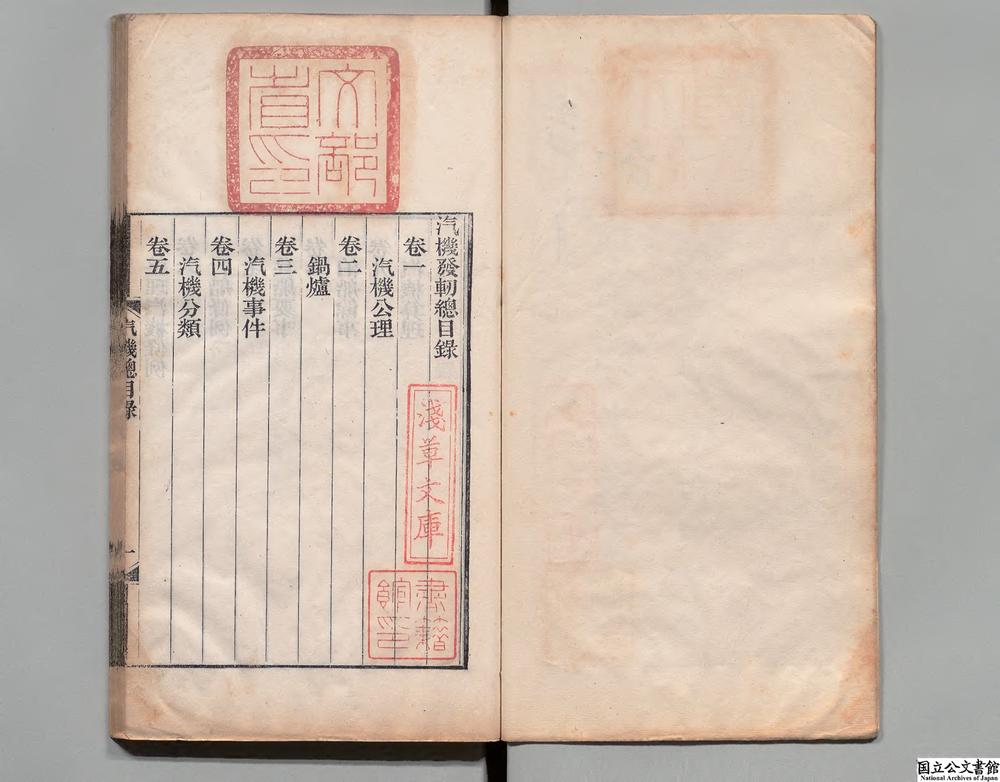 汽機發軔總目錄
卷一
汽機公理
卷二
鍋爐
卷三
汽機事件
卷四
汽機分類
卷五
汽機總目錄
一
文部
省印
淺草文庫
書籍
館印
国立公文書館
National Archives of Japan